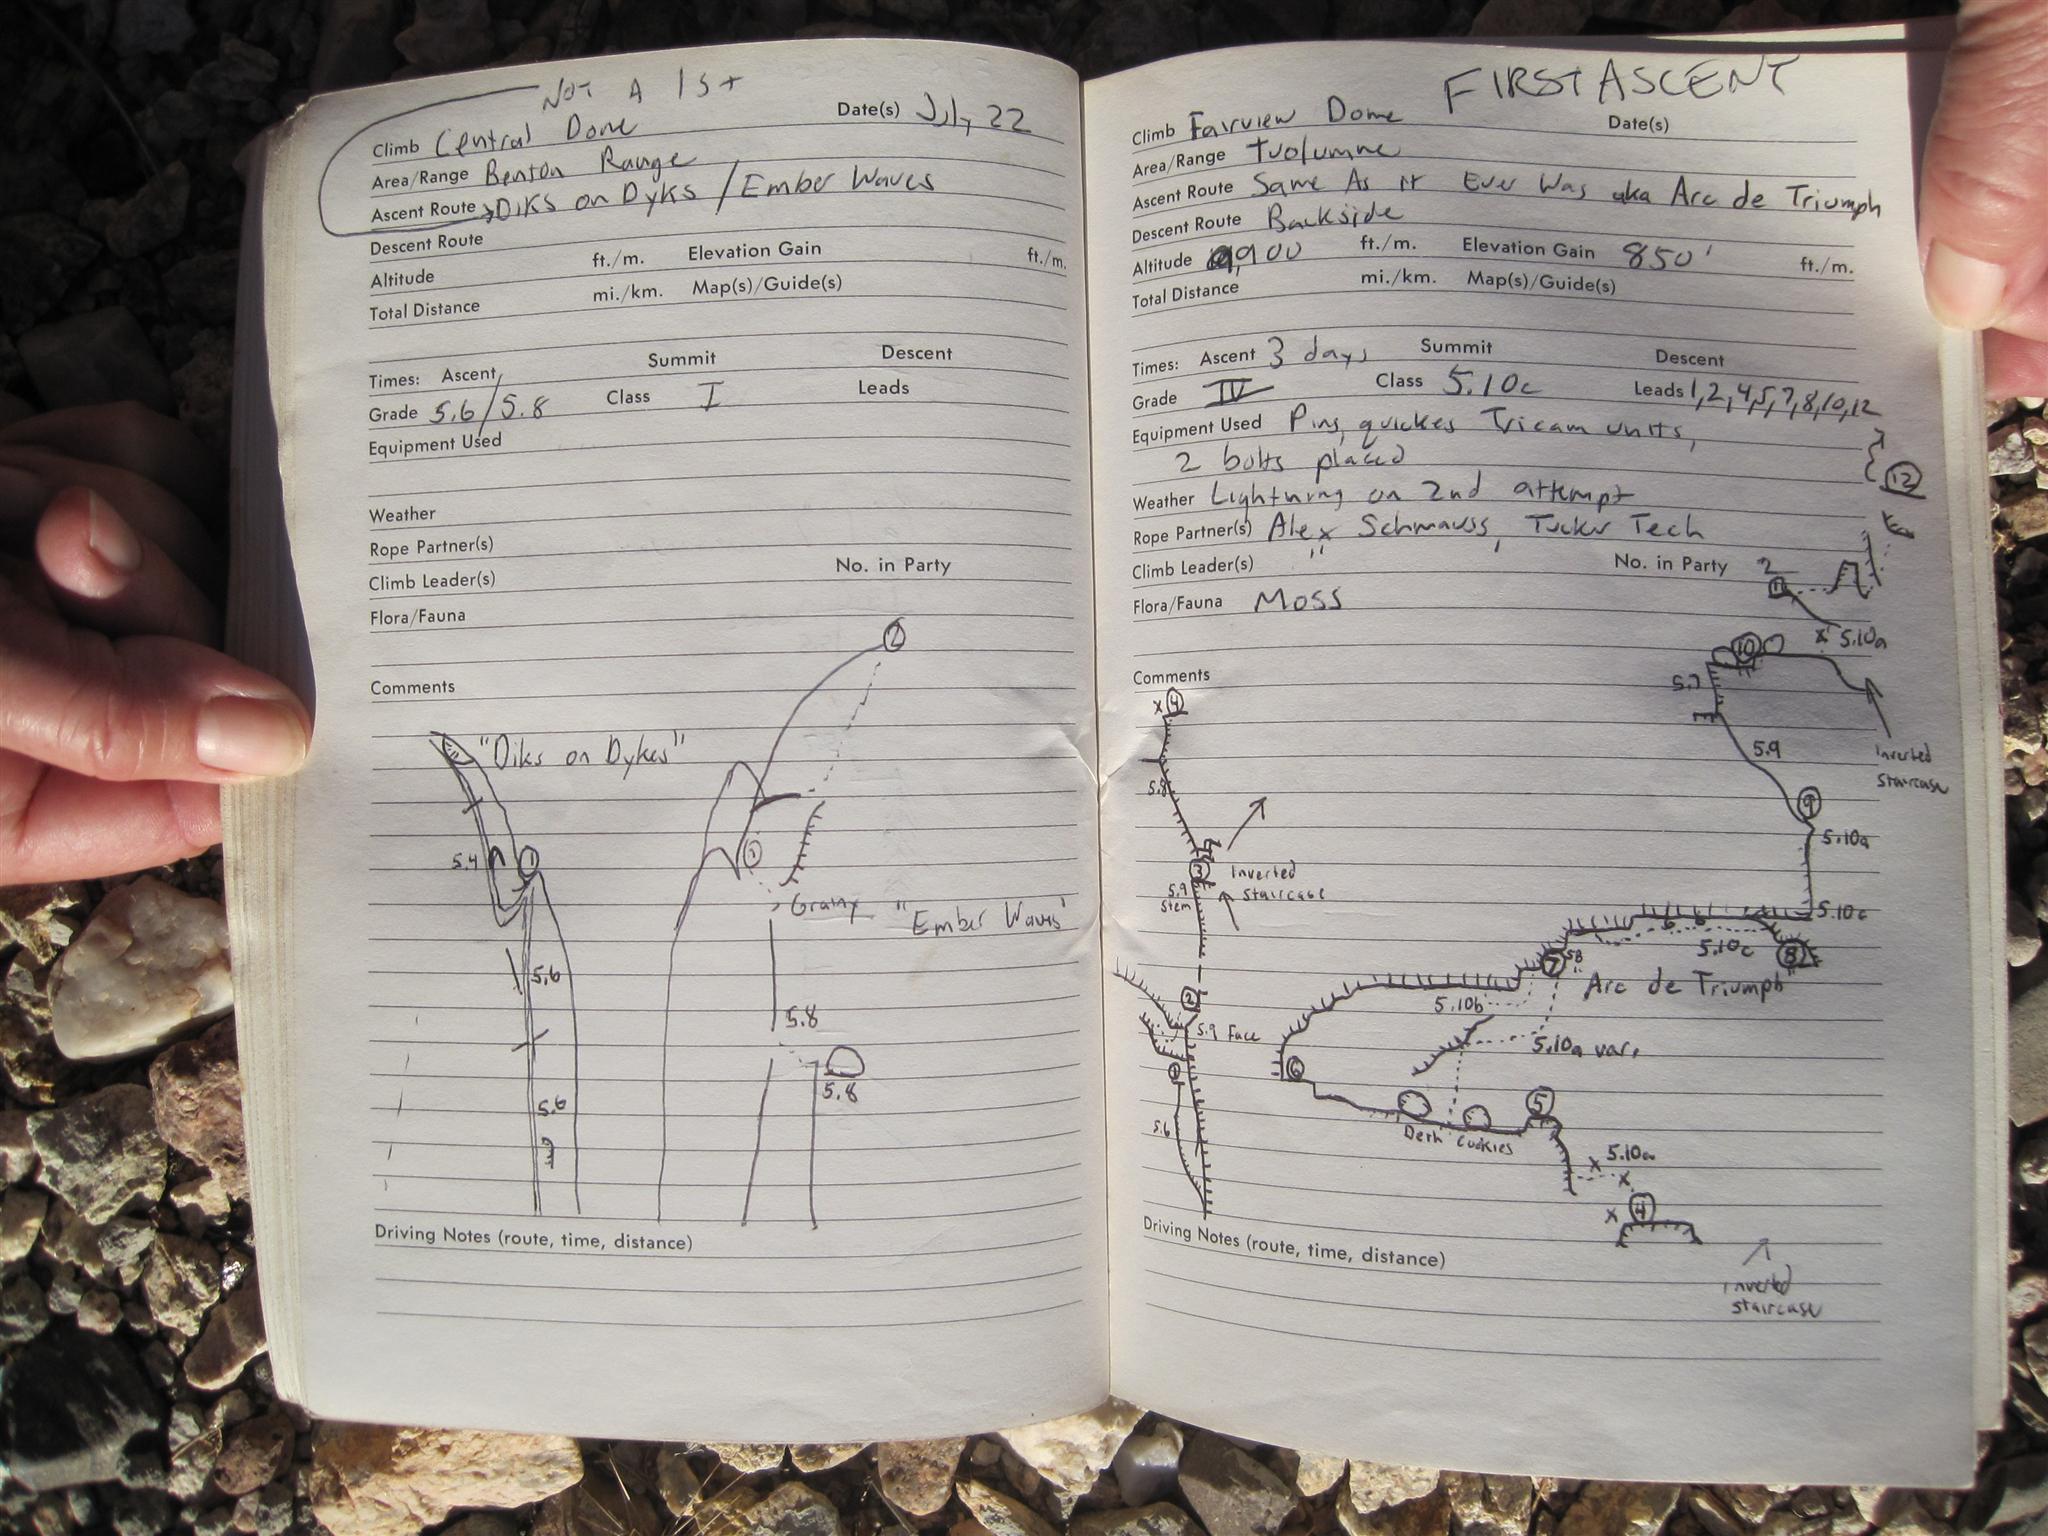 NOT A 1st
Climb Central Dome Date(s) July 22
Area/Range Benton Range
Ascent Route Diks on Dyks / Ember Waves
Descent Route
Altitude ft./m. Elevation Gain ft./m.
Total Distance mi./km. Map(s)/Guide(s)
Times: Ascent Summit Descent
Grade 5.6/5.8 Class I Leads
Equipment Used
Weather
Rope Partner(s)
Climb Leader(s) No. in Party
Flora/Fauna
2
Comments
2 "Diks on Dykes"
5.4 1 1
Grainy "Ember Waves"
5.6
5.8
5.8
5.6
Driving Notes (route, time, distance)
FIRST ASCENT
Climb Fairview Dome Date(s)
Area/Range Tuolumne
Ascent Route Same As it Ever Was aka Arc de Triumph
Descent Route Backside
Altitude 9,900 ft./m. Elevation Gain 850' ft./m.
Total Distance mi./km. Map(s)/Guide(s)
Times: Ascent 3 days Summit Descent
Grade IV Class 5.10c Leads 1,2,4,5,7,8,10,12
Equipment Used Pins, quickes Tricam units,
2 bolts placed
12
Weather Lightning on 2nd attempt
Rope Partner(s) Alex Schmauss, Tucker Tech
Climb Leader(s) " No. in Party 2
11
Flora/Fauna Moss
x 5.10a
10
Comments 5.7
x 4
5.9
Inverted
staircase
5.8
9
5.10a
3 Inverted
staircase
5.9
stem
5.10c
5.10c 8
7 5.8
"Arc de Triumph"
2 5.10b
5.9 Face
5.10a var.
1 6
5 Derk Cookies
5.6 x 5.10a
x
x 4
Driving Notes (route, time, distance)
Inverted
staircase